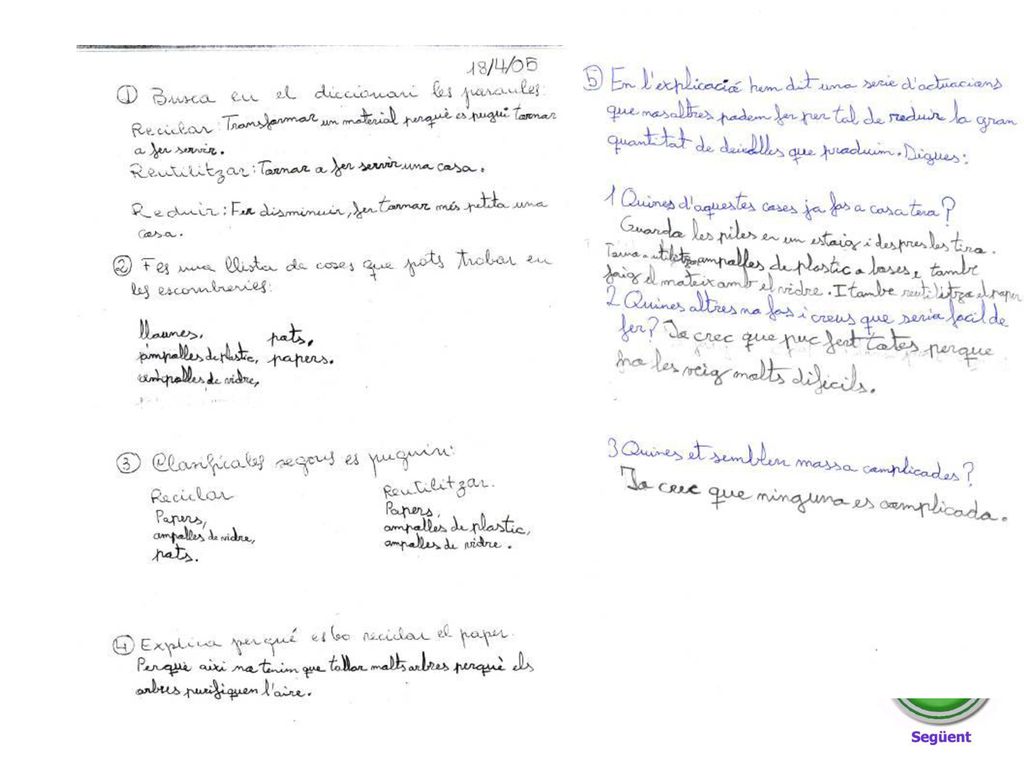 18/4/05
① Busca en el diccionari les paraules:
Reciclar: Transformar un material perquè es pugui tornar
a fer servir.
Reutilitzar: Tornar a fer servir una cosa.
Reduir: Fer disminuir, fer tornar més petita una
cosa.
② Fes una llista de coses que pots trobar en
les escombreries:
llaunes, pots,
ampolles de plastic, papers.
ampolles de vidre,
③ Clasifícales segons es puguin:
Reciclar
Papers,
ampolles de vidre,
pots.
Reutilitzar.
Papers,
ampolles de plastic,
ampolles de vidre.
④ Explica perqué es bo reciclar el paper.
Perquè aixi no tenim que tallar molts arbres perquè els
arbres purifiquen l'aire.
⑤ En l'explicació hem dit una serie d'actuacions
que nosaltres podem fer per tal de reduir la gran
quantitat de deixalles que produim. Digues:
1 Quines d'aquestes coses ja fas a casa teva?
Guardo les piles en un estoig i despres les tiro.
Torno a utilitzar ampolles de plastic o bosses, e tambe
faig el mateix amb el vidre. I tambe reutilitzo el paper
2 Quines altres no fas i creus que seria facil de
fer? Jo crec que puc fer totes perque
no les veig molts dificils.
3 Quines et semblen massa complicades?
Jo crec que ninguna es complicada.
Següent